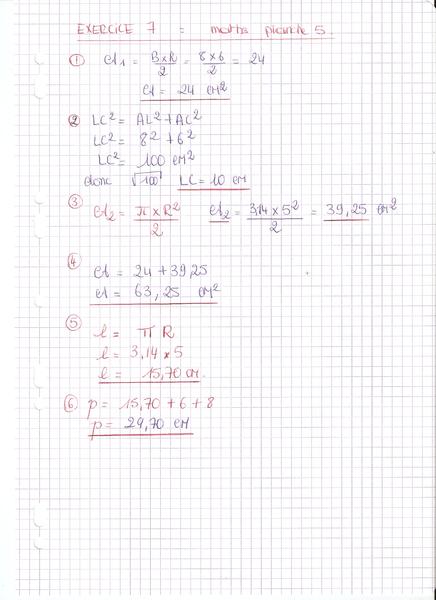 EXERCICE 7 : maths planche 5.
① A1 = B x R / 2 = 8 x 6 / 2 = 24
A = 24 cm²
② LC² = AL² + AC²
LC² = 8² + 6²
LC² = 100 cm²
donc √100 LC = 10 cm
③ A2 = π x R² / 2 A2 = 3,14 x 5² / 2 = 39,25 cm²
④
A = 24 + 39,25
A = 63,25 cm²
⑤
l = π R
l = 3,14 x 5
l = 15,70 cm.
⑥ p = 15,70 + 6 + 8
p = 29,70 cm